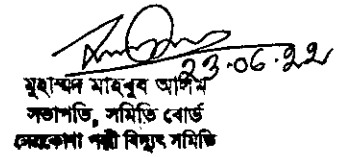 23-06-22
মুহাম্মদ মাহবুব আলিম
সভাপতি, সমিতি বোর্ড
নেত্রকোণা পল্লী বিদ্যুৎ সমিতি